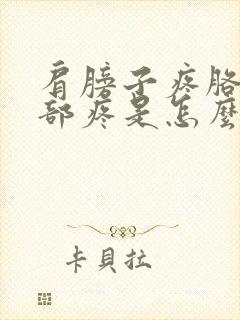 肩膀子疼胳
部疼是怎麼
卡貝拉